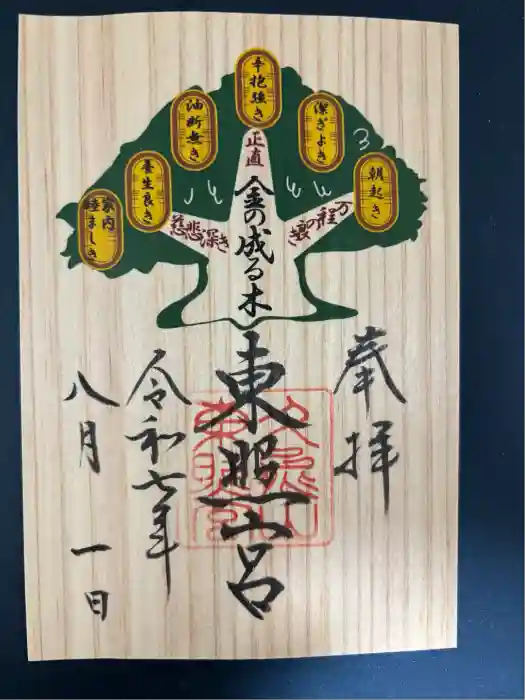 朝起き
潔ぎよき
辛抱強き
油断無き
養生良き
家内睦ましき
万程の良き
正直
慈悲深き
金の成る木
奉拝
東照宮
令和七年
八月一日